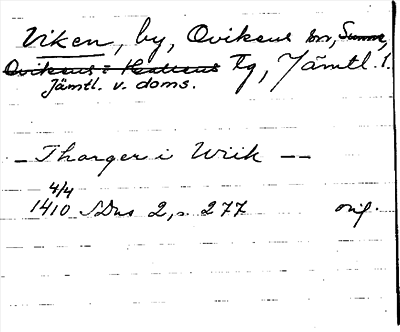 Viken, by, Ovikens sn, Sunne,
Ovikens o Hallens Tg, Jämtl. l.
Jämtl. v. doms.
– Tharger i Wiik – –
4/4
1410 SDns 2, s. 277 orig.